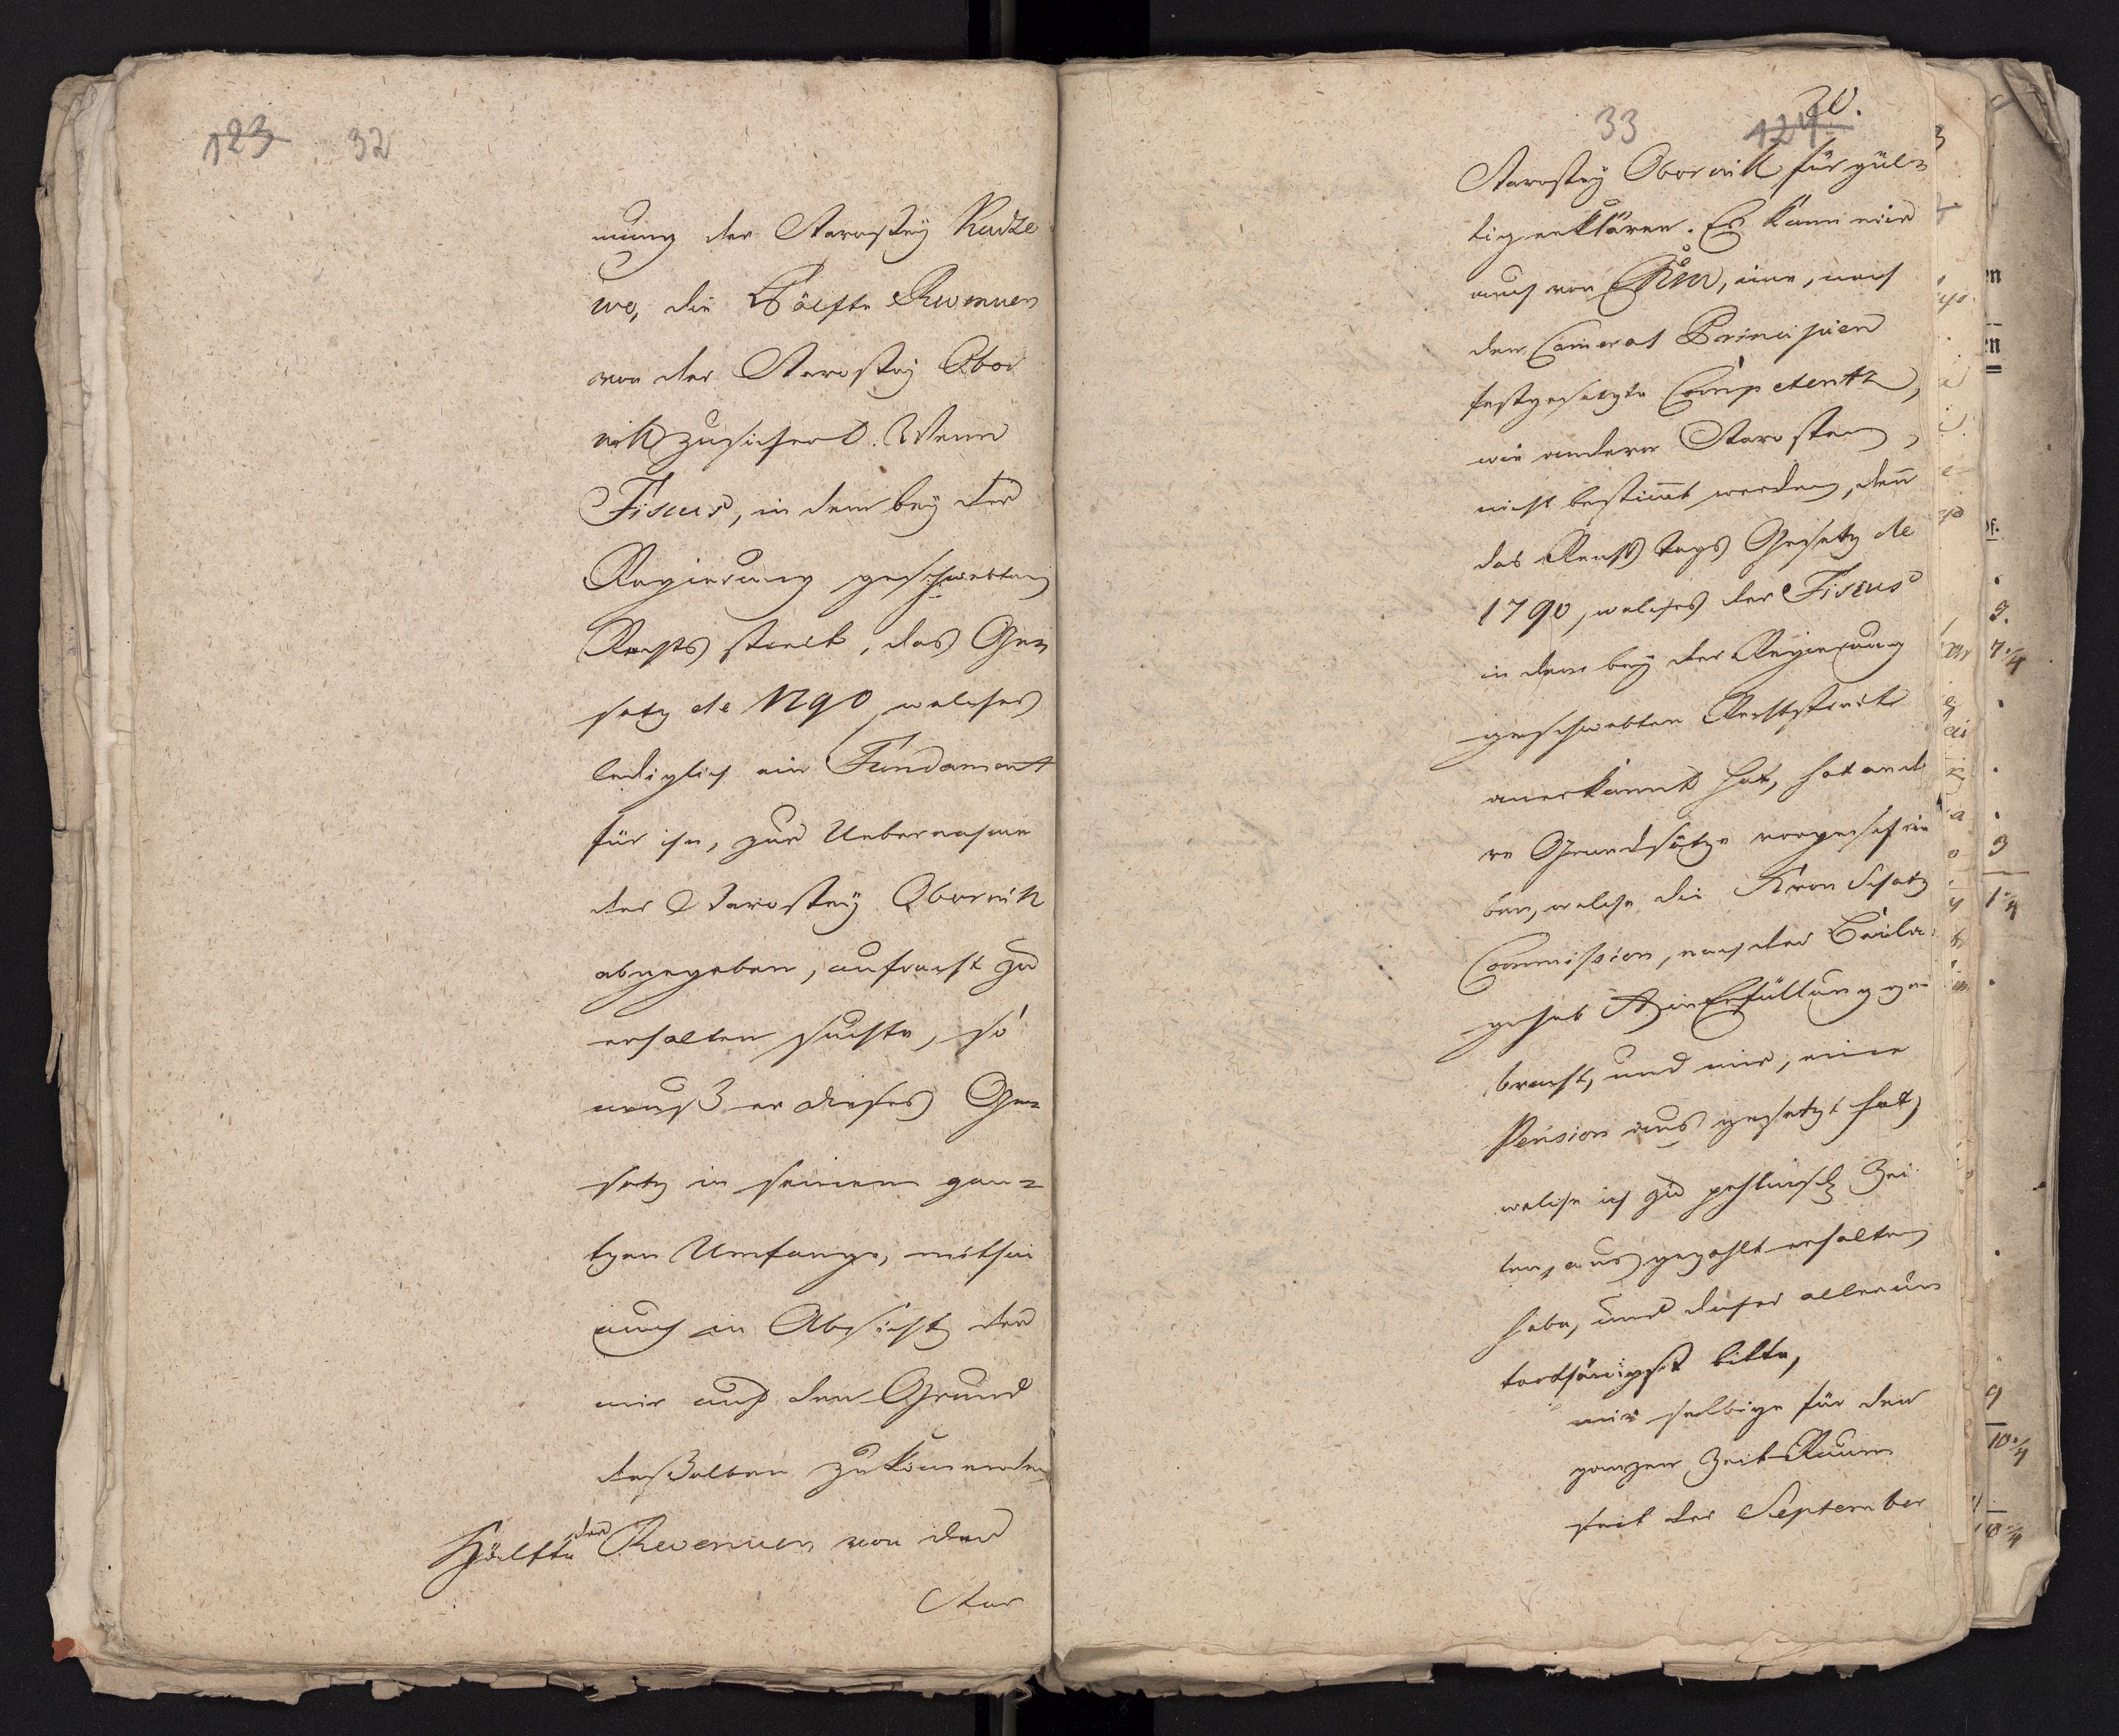 123 32
nung der Starostey Radze
wo, die Hälfte Revenuen
von der Starostey Obor
nik zusichert. Wenn
Fiscus, in dem bey der
Regierung geschwebten
Rechts streit, das Ge=
setz de 1790 welches
lediglich ein Fundament
für ihn, zur Uebernahme
der Starostey Obornik
abgegeben, aufrecht zu
erhalten suchte, so
muß er dieses Ge=
setz in seinem gan=
tzen Umfange, mithin
auch in Absicht der
mir auf den Grund
deßelben zukommenden
Hälfte der Revenuen von der
Star
33 124 20.
Starostey Obornik für gül=
tig erklären. Es kann mir
auch von, eine, nach
den Cameral Principien
festgesetzte Competentz,
wie andern Starosten,
nicht bestimmt werden, denn
das Reichs tags Gesetz de
1790, welches der Fiscus
in dem bey der Regierung
geschwebten Rechtsstreit
anerkannt hat, hat ande
re Grundsätze vorgeschrie
ben, welche die Kron Schatz
Commission, nach der Beila
ge sub A in Erfüllung ge
bracht, und mir, eine
Pension aus gesetzt hat,
welche ich zu pohlnisch Zei
ten, aus gezahlt erhalten
habe, und daher allerun
terthänigst bitte,
mir selbige für den
ganzen Zeit-Raum
seit der September